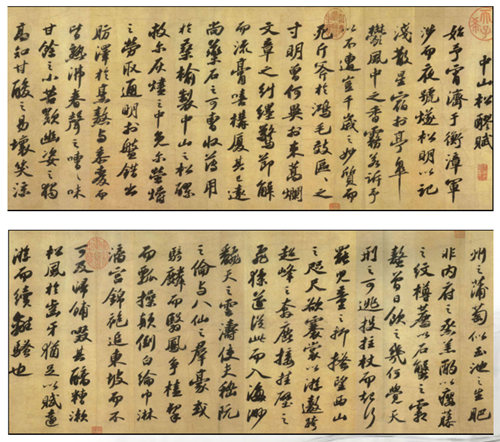 中山松醪賦
始予宵濟於衡漳軍
涉而夜號燧松明以記
淺散星宿於亭皋
鬱風中之香霧若訴予
以不遭豈千歲之妙質而
死斤斧於鴻毛效區區之
寸明曾何異於束蒿爛
文章之糾纆驚節解
而流膏嗟構廈其已遠
尚藥石之可曹收薄用
於桑榆製中山之松醪
救爾灰燼之中免爾螢爝
之勞取通明於盤錯出
肪澤於烹熬與黍麥而
皆熟沸春聲之嘈嘈味
甘餘之小苦歎幽姿之獨
高知甘酸之易壞笑涼
州之蒲萄似玉池之生肥
非內府之蒸羔酌以癭藤
之紋樽薦以石蟹之霜
螯曾日飲之幾何覺天
刑之可逃投拄杖而起行
罷兒童之抑搔望西山
之咫尺欲褰裳以游遨跨
超峰之奔鹿接挂壁之
飛猱遂從此而入海渺
翻天之雲濤使夫嵇阮
之倫與八仙之群豪或
騎麟而翳鳳爭榼挈
而瓢操顛倒白綸巾淋
漓宮錦袍追東坡而不
可及歸餔歠其醨糟漱
松風於齒牙猶足以賦遠
游而續離騷也